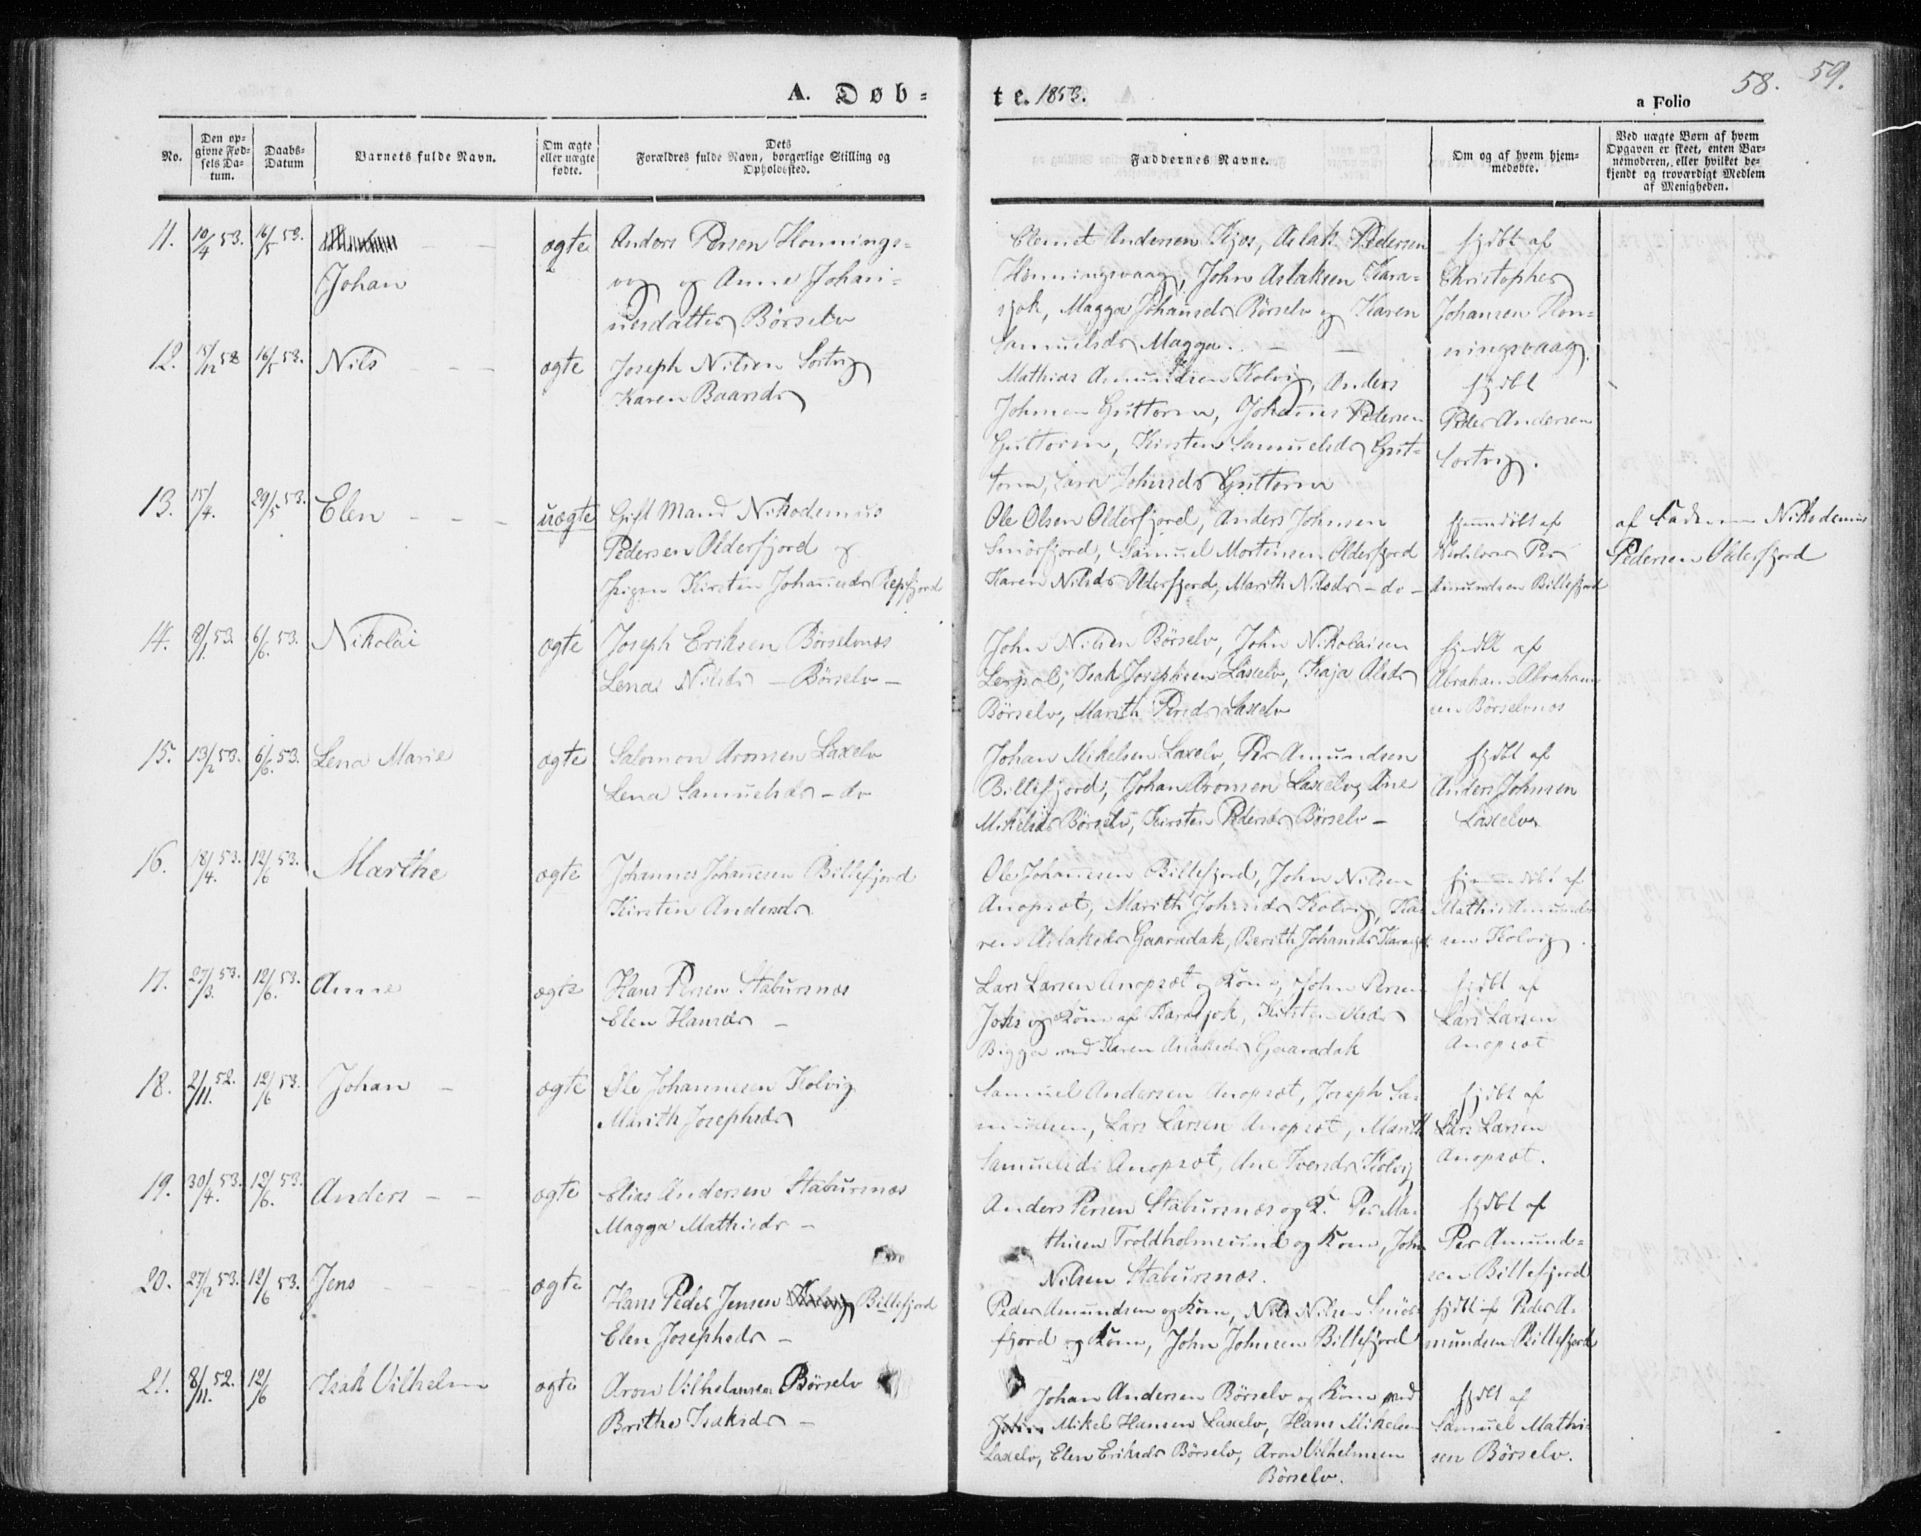 A. Døb=
te. 1853.
a Folio
58. 59.
No.
Den op=
givne Fød=
sels Da=
tum.
Daabs=
Datum
Barnets fulde Navn.
Om ægte
eller uægte
fødte.
Dets
Forældres fulde Navn, borgerlige Stilling og
Opholdssted.
Faddernes Navne.
Om og af hvem hjem=
medøbte.
Ved uægte Børn af hvem
Opgaven er skeet, enten Bar=
nemoderen, eller hvilket be=
kjendt og troværdigt Medlem
af Menigheden.
11. 10/4 53. 16/5 53.
Johan
ægte
Anders Persen Honnings=
vog og Anne Johan=
nesdatter Börselv
Clemet Andersen Kjos, Aslak Pedersen
Honningsvaag, John Aslaksen Kara=
sjok, Magga Johansdr Börselv og Karen
Samuelsdr Magga.
hjdbt af
Christopher
Johansen Hon=
ningsvaag.
12. 16/5 53. Nils ægte
Joseph Nilsen Sortvig
Karen Baardsdr
Mathias Amundsen Kolvig, Anders
Johnsen Guttorm, Johannes Pedersen
Guttorm, Kirsten Samuelsdr Gut=
torm, Johnsdr Guttorm
hjdbt
Peder Andersen
Sortvig.
13. 15/4. 29/5 53. Elen uægte
Gift Mand Nikodemus
Pedersen Olderfjord og
Pigen Kirsten Johannesdr Repfjord
Ole Olsen Olderfjord, Anders Johnsen
Smörfjord, Samuel Mortensen Olderfjord
Karen Nilsdr Olderfjord, Marith Nilsdr - do -
hjemmdöbt af
Per
Amundsen Billefjord
af Faderen Nikodemus
Pedersen Olderfjord
14. 8/1. 53. 6/6. 53. Nikolai ægte
Joseph Eriksen Börselvnæs
Lena Nilsdr - Börselv -
John Nilsen Börselv, John Nikolaisen
Isak Josephsen Laxelv, Kaja Olsdr
Börselv, Marith Persdr Laxelv
hjdbt af
Abraham Abraham=
sen Börselvnæs
15. 13/2 53. 6/6. 53. Lena Marie ægte
Salomon Aronsen Laxelv
Lena Samuelsdr - do
Johan Mikelsen Laxelv, Per Amundsen
Billefjord, Johan Aronsen Laxelv, Ane
Mikelsdr Börselv, Kirsten Pedersdr Börselv -
hjdbt af
Anders Johnsen
Laxelv
16. 18/4. 53. 12/6 53. Marthe ægte
Johannes Johannesen Billefjord
Kirsten Andersdr
Ole Johannesen Billefjord, John Nilsen
Anopsæt, Marith Johnsdr Kolvig, Ka=
ren Aslaksdr Gaaradak, Berith Johansdr Karasjok
hjemmdöbt af
Mathis Amund=
sen Kolvig.
17. 27/3. 53. 12/6. 53. Anne ægte
Hans Persen Stabursnæs
Elen Hansdr -
Lars Larsen Anopsæt og Kone, John Persen
Joks og Kone af Karasjok, Kirsten Olsdr
Bigga med Karen Aslaksdr Gaaradak
hjdbt af
Lars Larsen
Anopsæt
18. 2/11. 52. 12/6 53. Johan - ægte
Ole Johannesen Kolvig
Marith Josephsdr
Samuel Andersen Anopsæt, Joseph Sa=
muelsen, Lars Larsen Anopsæt, Marith
Samuelsdr Anopsæt, Ane Iversdr Kolvig
hjdbt af
Lars Larsen
Anopsæt.
19. 30/4. 53. 12/6. 53. Anders - - ægte
Elias Andersen Stabursnæs
Magga Mathisdr -
Anders Persen Stabursnæs og K. Per Ma=
thisen Troldholmsund og Kone, John
Nilsen Stabursnæs.
hjdbt af
Per Amund=
sen Billefjord
20. 27/2 53. 12/6 53. Jens ægte
Hans Peder Jensen Billefjord
Elen Josephsdr -
Peder Amundsen og Kone, Nils Nilsen Smör=
fjord og Kone, John Johnsen Billefjord
hjdbt af Peder A=
mundsen Billefjord
21. 8/11. 52. 12/6 Isak Vilhelm ægte
Aron Vilhelmsen Börselv
Brithe Isaksdr -
Johan Andersen Börselv og Kone med
Mikel Hansen Laxelv, Hans Mikelsen
Laxelv, Elen Eriksdr Börselv, Aron Vilhelmsen
Börselv.
hjdbt af
Samuel Mathi=
sen Börselv.